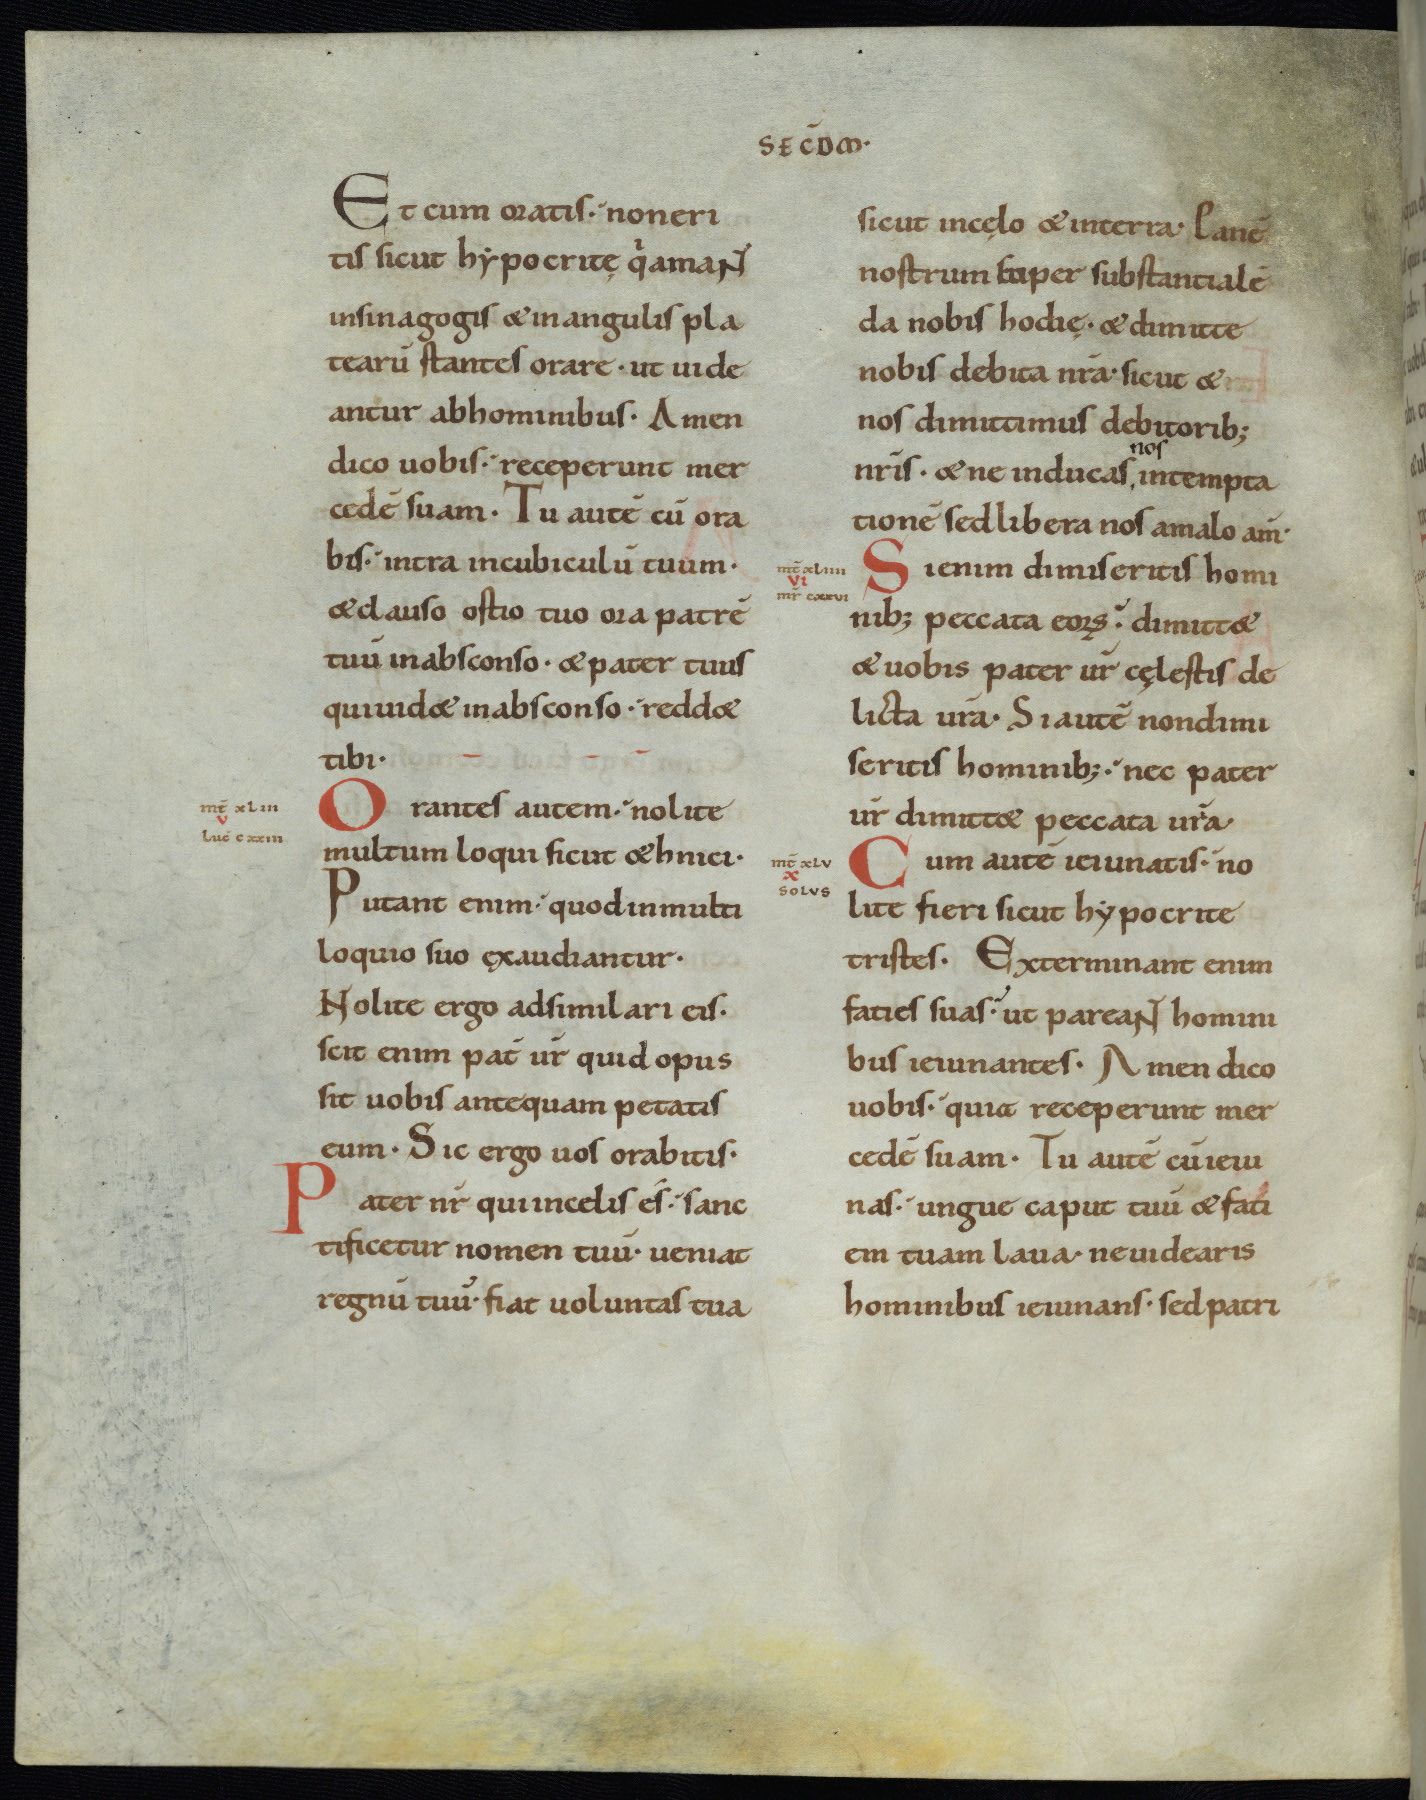 SEC̄DM·
Et cum oratis· non eri
tis sicut hẏpocritę qͥ amaN̄
in sinagogis & in angulis pla
tearū stantes orare · ut uide
antur ab hominibus · Amen
dico uobis · receperunt mer
cedē suam · Tu autē cū ora
bis · intra in cubiculū tuum ·
& clauso ostio tuo ora patrē
tuū in absconso · & pater tuus
qui uid& in absconso · redd&
tibi ·
mt̄ xLIII
V
Luc̄ cxxIII
Orantes autem · nolite
multum loqui sicut &hnici ·
Putant enim · quod in multi
loquio suo ęxaudiantur ·
Nolite ergo adsimilari eis ·
scit enim pat̄ ur̄ quid opus
sit uobis antequam petatis
eum · Sic ergo uos orabitis ·
Pater nr̄ qui in celis es̄ · sanc
tificetur nomen tuū · ueniat
regnū tuū · fiat uoluntas tua
sicut in cęlo & in terra · Panē
nostrum super substantialē
da nobis hodię · & dimitte
nobis debita nr̄a · sicut &
nos dimittimus debitorib;
nos
nr̄is · & ne inducas, in tempta
tionē sed libera nos a malo am̄ ·
mt̄ xLIIII
VI
mr̄ cxxvI
Si enim dimiseritis homi
nib; peccata eoꝝ · dimitt&
& uobis pater ur̄ cęlestis de
licta ur̄a · Si autē non dimi
seritis hominib; · nec pater
ur̄ dimitt& peccata ur̄a ·
mt̄ xLV
X
SOLVS
Cum autē ieiunatis · no
lite fieri sicut hẏpocrite
tristes · Exterminant enim
faties suas · ut pareaN̄ homini
bus ieiunantes · Amen dico
uobis · quia receperunt mer
cedē suam · Tu autē cū ieiu
nas · ungue caput tuū & fati
em tuam laua · ne uidearis
hominibus ieiunans · sed patri